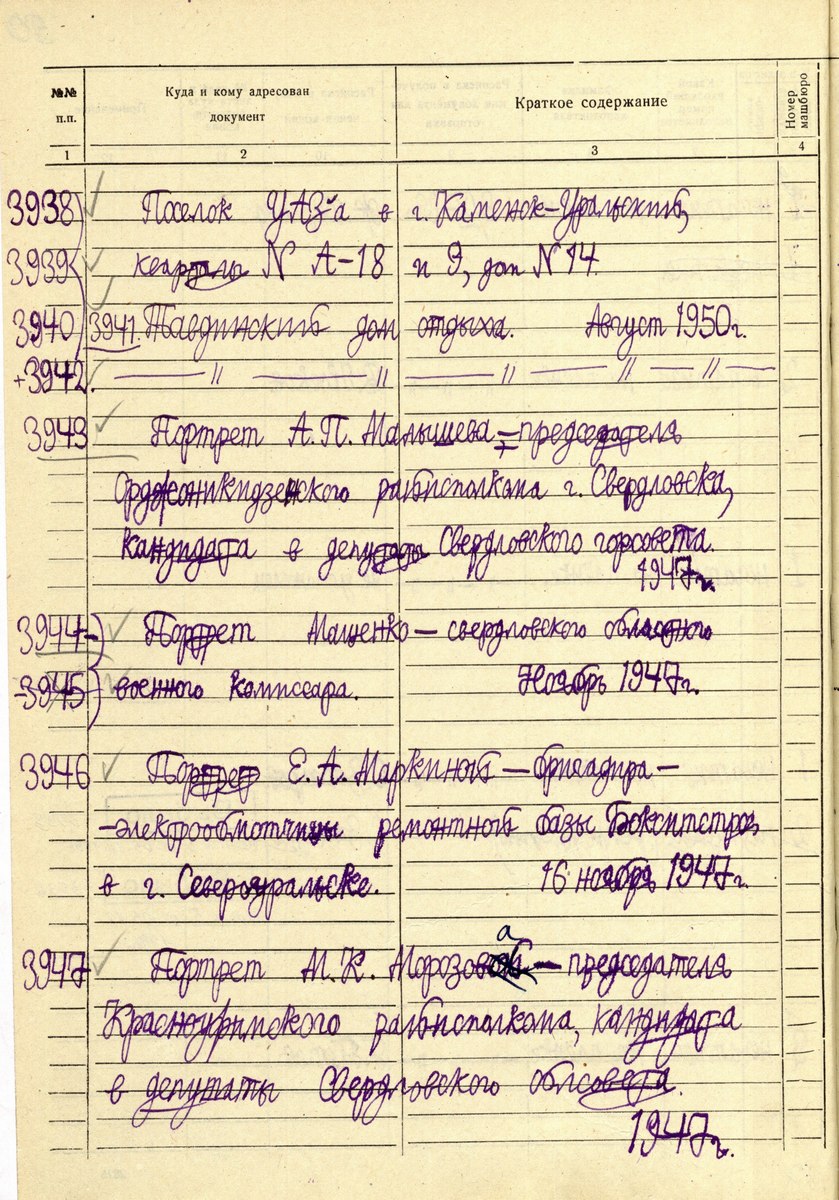 №№ п.п.
Куда и кому адресован документ
Краткое содержание
Номер машбюро
1 2 3 4
3938 Поселок УАЗ-а в г. Каменск-Уральский,
3939 кварталы N А-18 и 9, дом N 14.
3940 3941. Тавдинский дом отдыха. Август 1950г.
+3942. — // — // — // — // — // —
3943 Портрет А.П. Малышева - председателя
Орджоникидзенского райисполкома г. Свердловска,
кандидата в депутаты Свердловского горсовета.
1947г.
3944- Портрет Мащенко — свердловского областного
-3945 военного комиссара. Ноябрь 1947г.
3946 Портрет Е.А. Маркиной — бригадира —
-электрообмотчицы ремонтной базы Бокситстроя
в г. Североуральске. 16 ноября 1947г.
3947 Портрет М.К. Морозова — председателя
Красноуфимского райисполкома, кандидата
в депутаты Свердловского облсовета.
1947г.